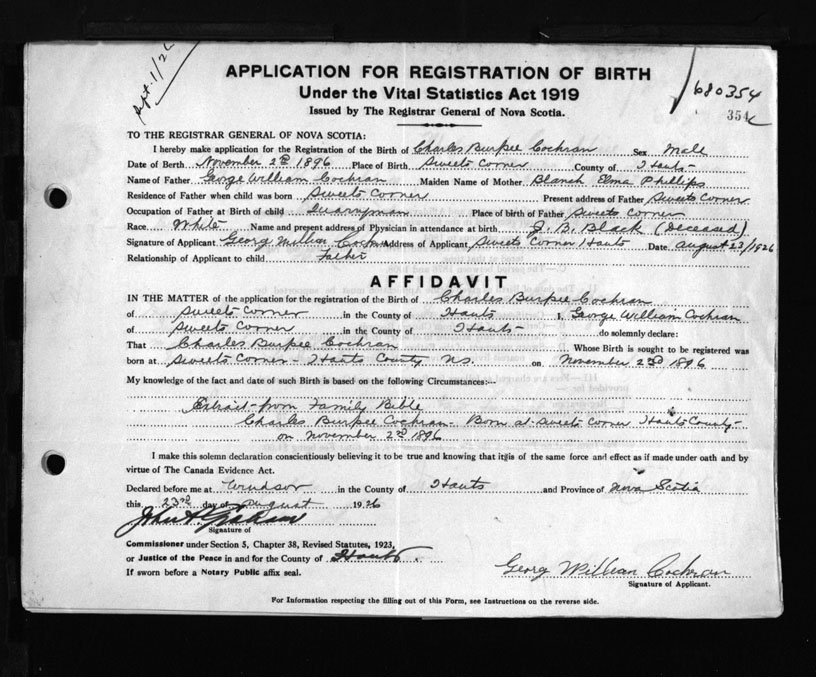 Sept. 1/26
APPLICATION FOR REGISTRATION OF BIRTH
Under the Vital Statistics Act 1919
Issued by The Registrar General of Nova Scotia.
680354
354
TO THE REGISTRAR GENERAL OF NOVA SCOTIA:
I hereby make application for the Registration of the Birth of Charles Burpee Cochran Sex Male
Date of Birth November 2nd 1896 Place of Birth Sweets Corner County of Hants
Name of Father George William Cochran Maiden Name of Mother Blanch Elma Phillips
Residence of Father when child was born Sweets Corner Present address of Father Sweets Corner
Occupation of Father at Birth of child Quarryman Place of birth of Father Sweets Corner
Race White Name and present address of Physician in attendance at birth J. B. Black (Deceased)
Signature of Applicant Georg William Cochran Address of Applicant Sweets Corner Hants Date August 23/1926
Relationship of Applicant to child Father
AFFIDAVIT
IN THE MATTER of the application for the registration of the Birth of Charles Burpee Cochran
of Sweets Corner in the County of Hants I, George William Cochran
of Sweets Corner in the County of Hants do solemnly declare:
That Charles Burpee Cochran Whose Birth is sought to be registered was
born at Sweets Corner - Hants County NS. on November 2nd 1896
My knowledge of the fact and date of such Birth is based on the following Circumstances:—
Extract from Family Bible
Charles Burpee Cochran - Born at Sweets Corner Hants County -
on November 2nd 1896
I make this solemn declaration conscientiously believing it to be true and knowing that it is of the same force and effect as if made under oath and by
virtue of The Canada Evidence Act.
Declared before me at Windsor in the County of Hants and Province of Nova Scotia
this 23rd day of August 1926
John A. Graham
Signature of
Commissioner under Section 5, Chapter 38, Revised Statutes, 1923,
or Justice of the Peace in and for the County of Hants.
If sworn before a Notary Public affix seal.
Georg William Cochran
Signature of Applicant.
For Information respecting the filling out of this Form, see Instructions on the reverse side.